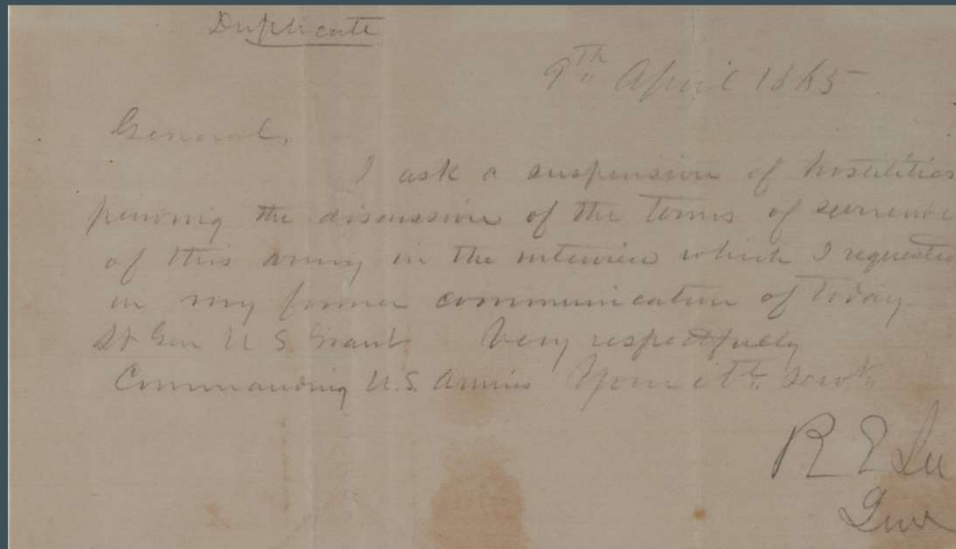 Duplicate
9th April 1865
General,
I ask a suspension of hostilities
pending the discussion of the terms of surrende
of this army in the interview which I requested
in my former communication of today
Lt Gen U S Grant Very respectfully
Commanding U.S. Armies Your obt servt
R E Lee
Genl